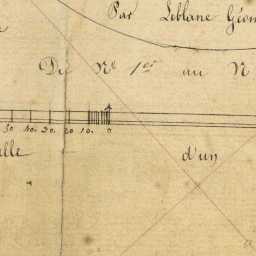 Par Leblanc Géom
Du N.º 1.er au N
50. 40. 30. 20. 10. 0
elle d'un